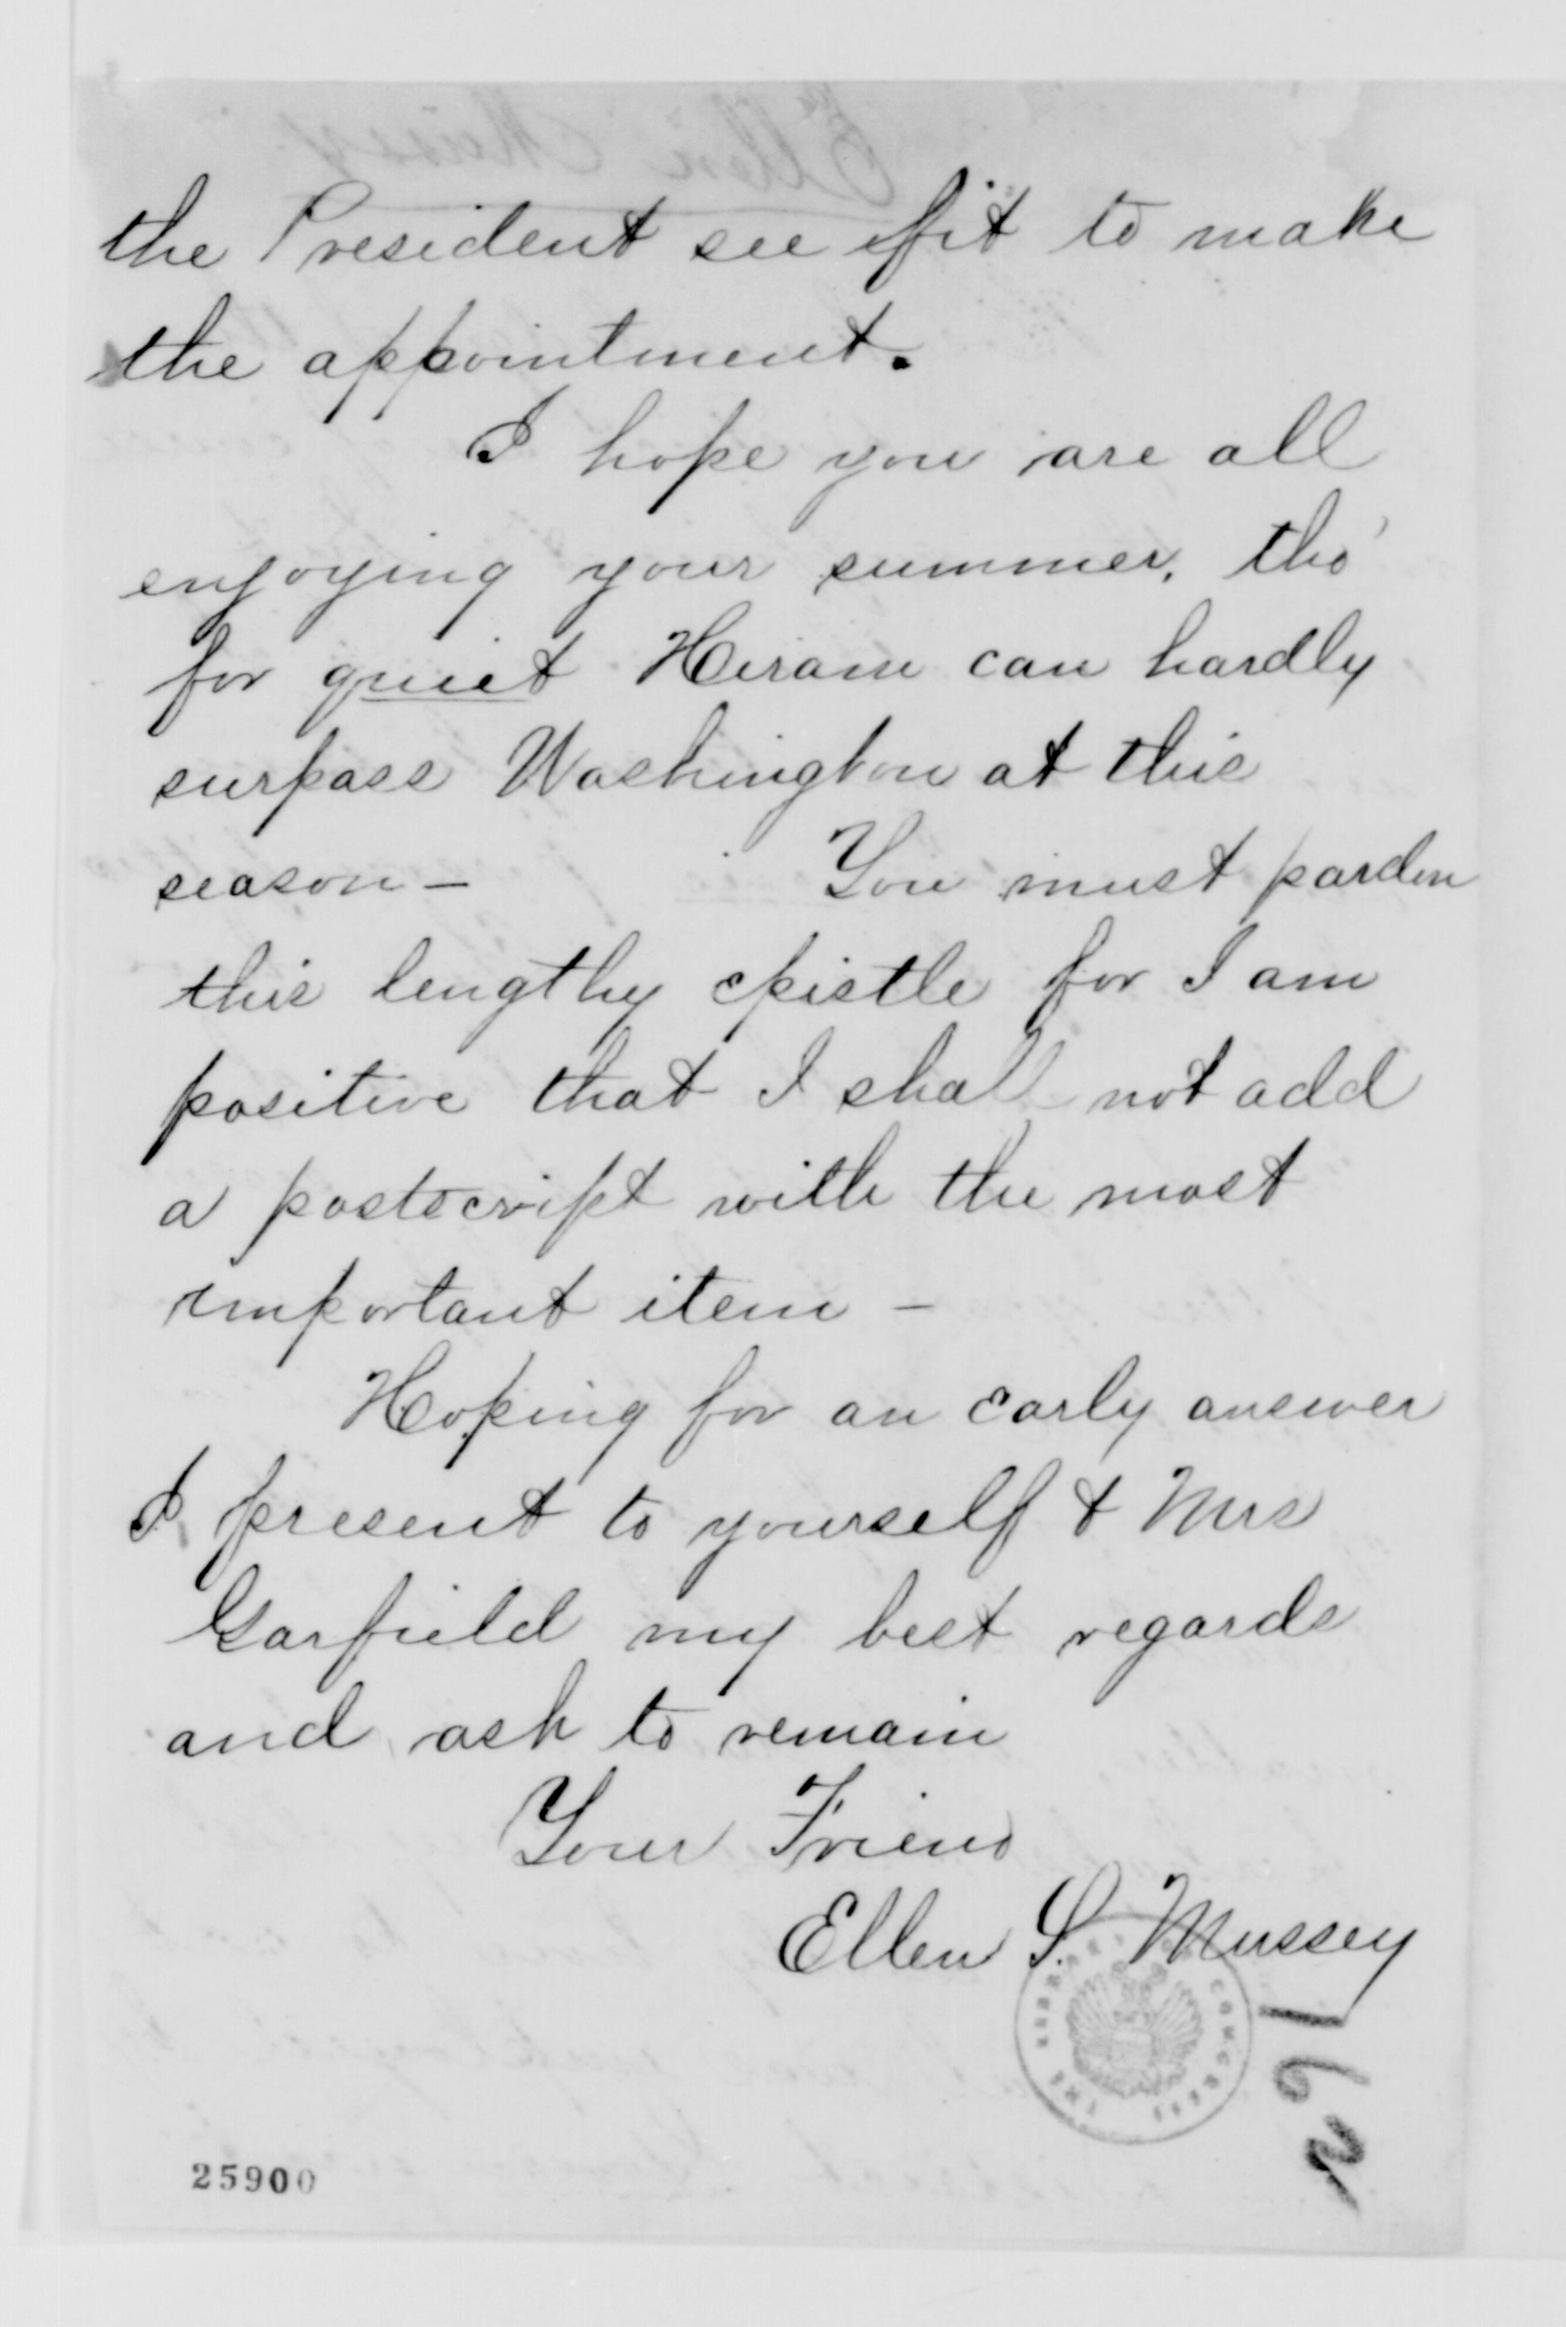 the President see fit to make
the appointment.
I hope you are all
enjoying your summer, tho'
for quiet Hiram can hardly
surpass Washington at this
season — You must pardon
this lengthy epistle for I am
positive that I shall not add
a postscript with the most
important item —
Hoping for an early answer
I present to yourself & Mrs
Garfield my best regards
and ask to remain
Your Friend
Ellen S. Mussey
THE LIBRARY OF CONGRESS
25900